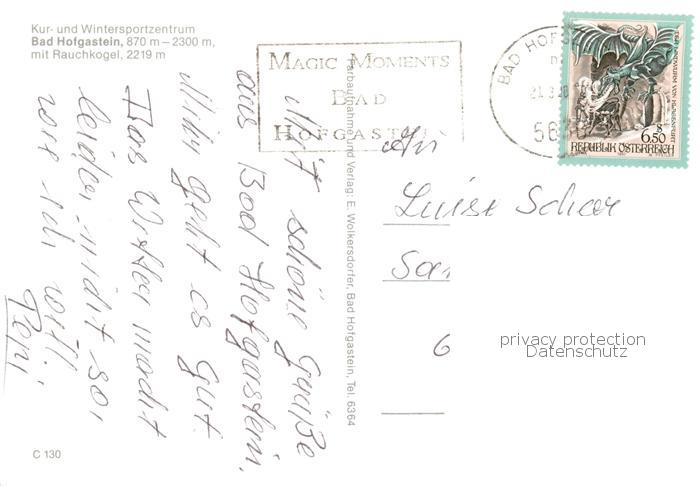 Kur- und Wintersportzentrum
Bad Hofgastein, 870 m – 2300 m,
mit Rauchkogel, 2219 m
MAGIC MOMENTS
BAD
HOFGASTEIN
BAD HOF
5630
DER LINDWURM VON KLAGENFURT
S
6.50
REPUBLIK ÖSTERREICH
Mit schöne Grüße
aus Bad Hofgastein.
Mir geht es gut.
Das Wetter macht
leider nicht so,
wie ich will.
Pepi
Farbaufnahme und Verlag: E. Wolkersdorfer, Bad Hofgastein, Tel. 6364
An
Luise Schar
6
privacy protection
Datenschutz
C 130